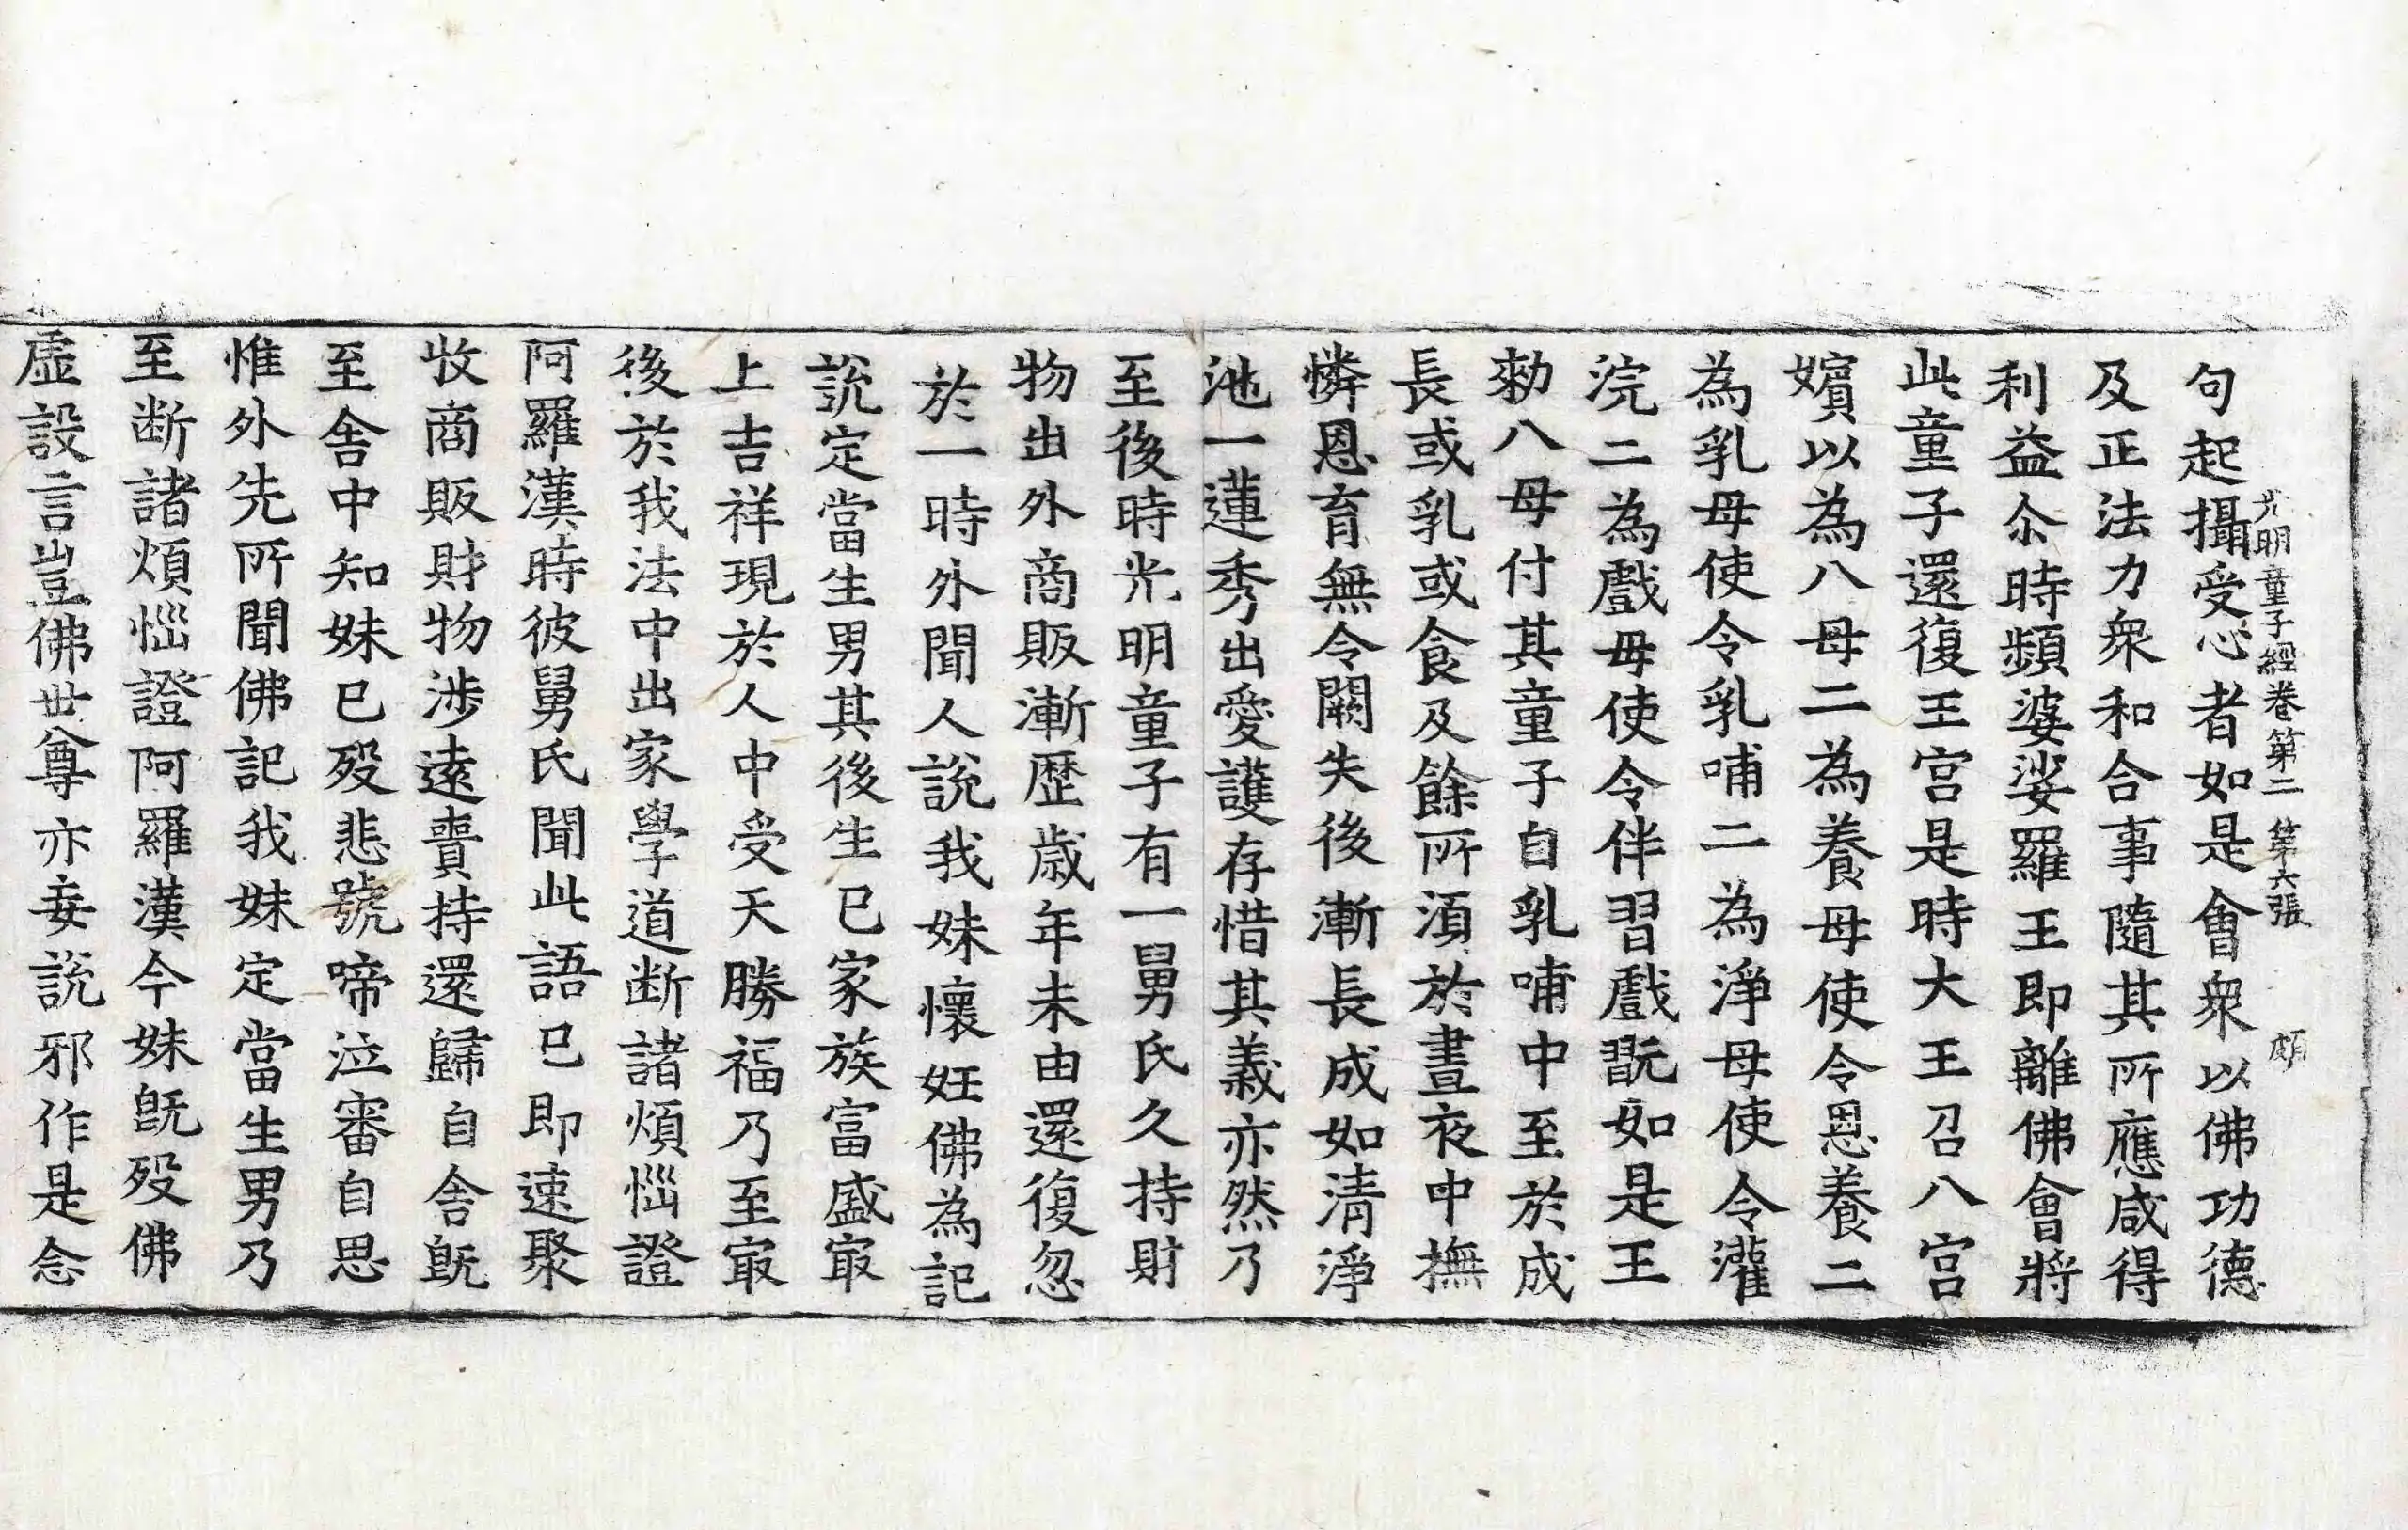 光明童子經卷第二 第六張 頗
句起攝受心者如是會衆以佛功德
及正法力衆和合事隨其所應咸得
利益尒時頻婆娑羅王即離佛會將
此童子還復王宮是時大王召八宮
嬪以為八母二為養母使令恩養二
為乳母使令乳哺二為淨母使令灌
浣二為戲母使令伴習戲翫如是王
勑八母付其童子自乳哺中至於成
長或乳或食及餘所須於晝夜中撫
憐恩育無令闕失後漸長成如清淨
池一蓮秀出愛護存惜其義亦然乃
至後時光明童子有一舅氏久持財
物出外商販漸歷歲年未由還復忽
於一時外聞人說我妹懷妊佛為記
說定當生男其後生已家族富盛㝡
上吉祥現於人中受天勝福乃至㝡
後於我法中出家學道断諸煩惱證
阿羅漢時彼舅氏聞此語已即速聚
收商販財物涉遠賷持還歸自舍既
至舍中知妹已殁悲號啼泣審自思
惟外先所聞佛記我妹定當生男乃
至断諸煩惱證阿羅漢今妹旣殁佛
虛設言豈佛世尊亦妄說邪作是念